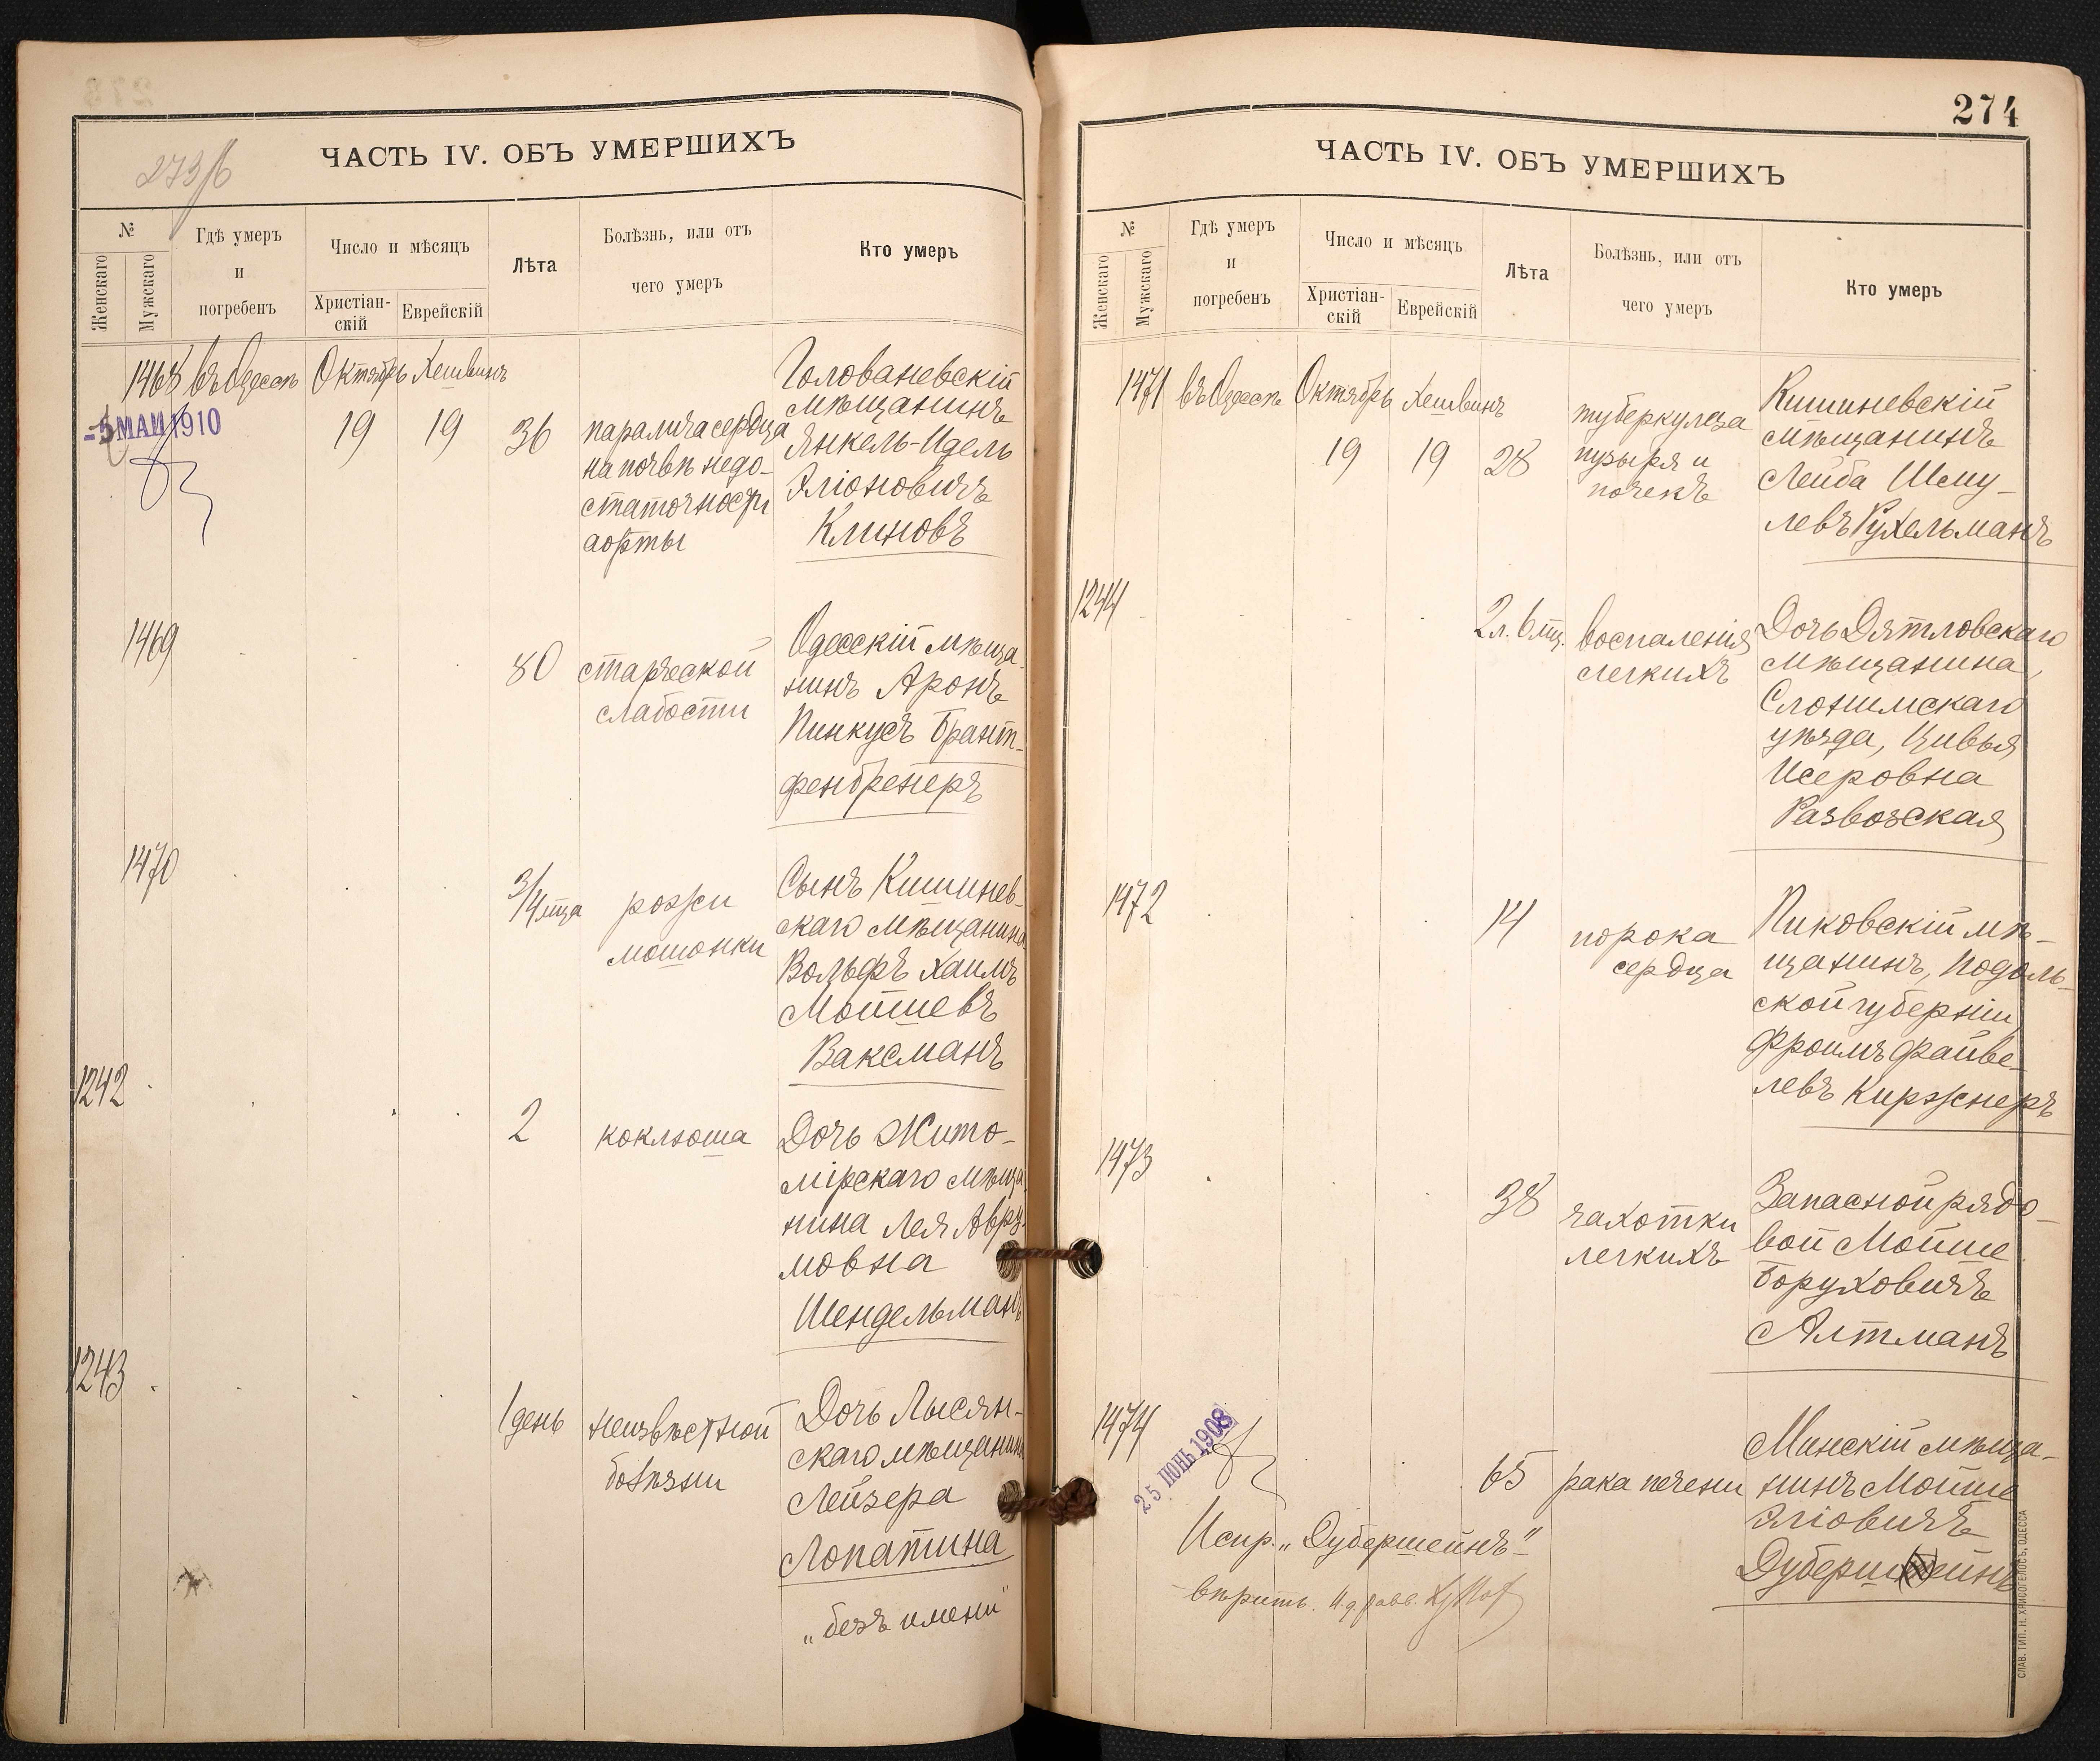 273/б
ЧАСТЬ IV. ОБЪ УМЕРШИХЪ
№
Женскаго
Мужскаго
Гдѣ умеръ
и
погребенъ
Число и мѣсяцъ
Христіан-
скій
Еврейскій
Лѣта
Болѣзнь, или отъ
чего умеръ
Кто умеръ
1468 въ Одессѣ Октябрь Хешвинъ
-5 МАЙ 1910
19 19 36
паралича сердца
на почвѣ недо-
статочности
аорты
Голованевскій
мѣщанинъ
Янкель-Идель
Эліоновичъ
Клиновъ
1469
80
старческой
слабости
Одесскій мѣща-
нинъ Аронъ
Пинкусъ Брант-
фенбренеръ
1470
3/4 мца
рожи
мошонки
Сынъ Кишинев-
скаго мѣщанина
Вольфъ Хаимъ
Мойшевъ
Ваксманъ
1242
2
коклюша
Дочь Жито-
мірскаго мѣща-
нина Лея Авру-
мовна
Шендельманъ
1243
1 день
неизвѣстной
болѣзни
Дочь Лысян-
скаго мѣщанина
Лейзера
Лопатина
„безъ имени"
274
ЧАСТЬ IV. ОБЪ УМЕРШИХЪ
№
Женскаго
Мужскаго
Гдѣ умеръ
и
погребенъ
Число и мѣсяцъ
Христіан-
скій
Еврейскій
Лѣта
Болѣзнь, или отъ
чего умеръ
Кто умеръ
1471 въ Одессѣ Октябрь Хешвинъ
19 19 28
туберкулеза
пузыря и
почекъ
Кишиневскій
мѣщанинъ
Лейба Шму-
левъ Рухельманъ
1244
2 л. 6 мц.
воспаленія
легкихъ
Дочь Дятловскаго
мѣщанина,
Слонимскаго
уѣзда, Цивья
Исеровна
Развозская
1472
14
порока
сердца
Пиковскій мѣ-
щанинъ, Подоль-
ской губерніи,
Фроимъ Файве-
левъ Киржнеръ
1473
38
чахотки
легкихъ
Запасной рядо-
вой Мойше
Боруховичъ
Алтманъ
1474
25 ІЮНЬ 1908
65
рака печени
Минскій мѣща-
нинъ Мойше
Эліовичъ
Дуберштейнъ
Испр. „Дуберштейнъ"
вѣрить. И. д. равв.
СЛАВ. ТИП. Н. ХРИСОГЕЛОСЪ, ОДЕССА